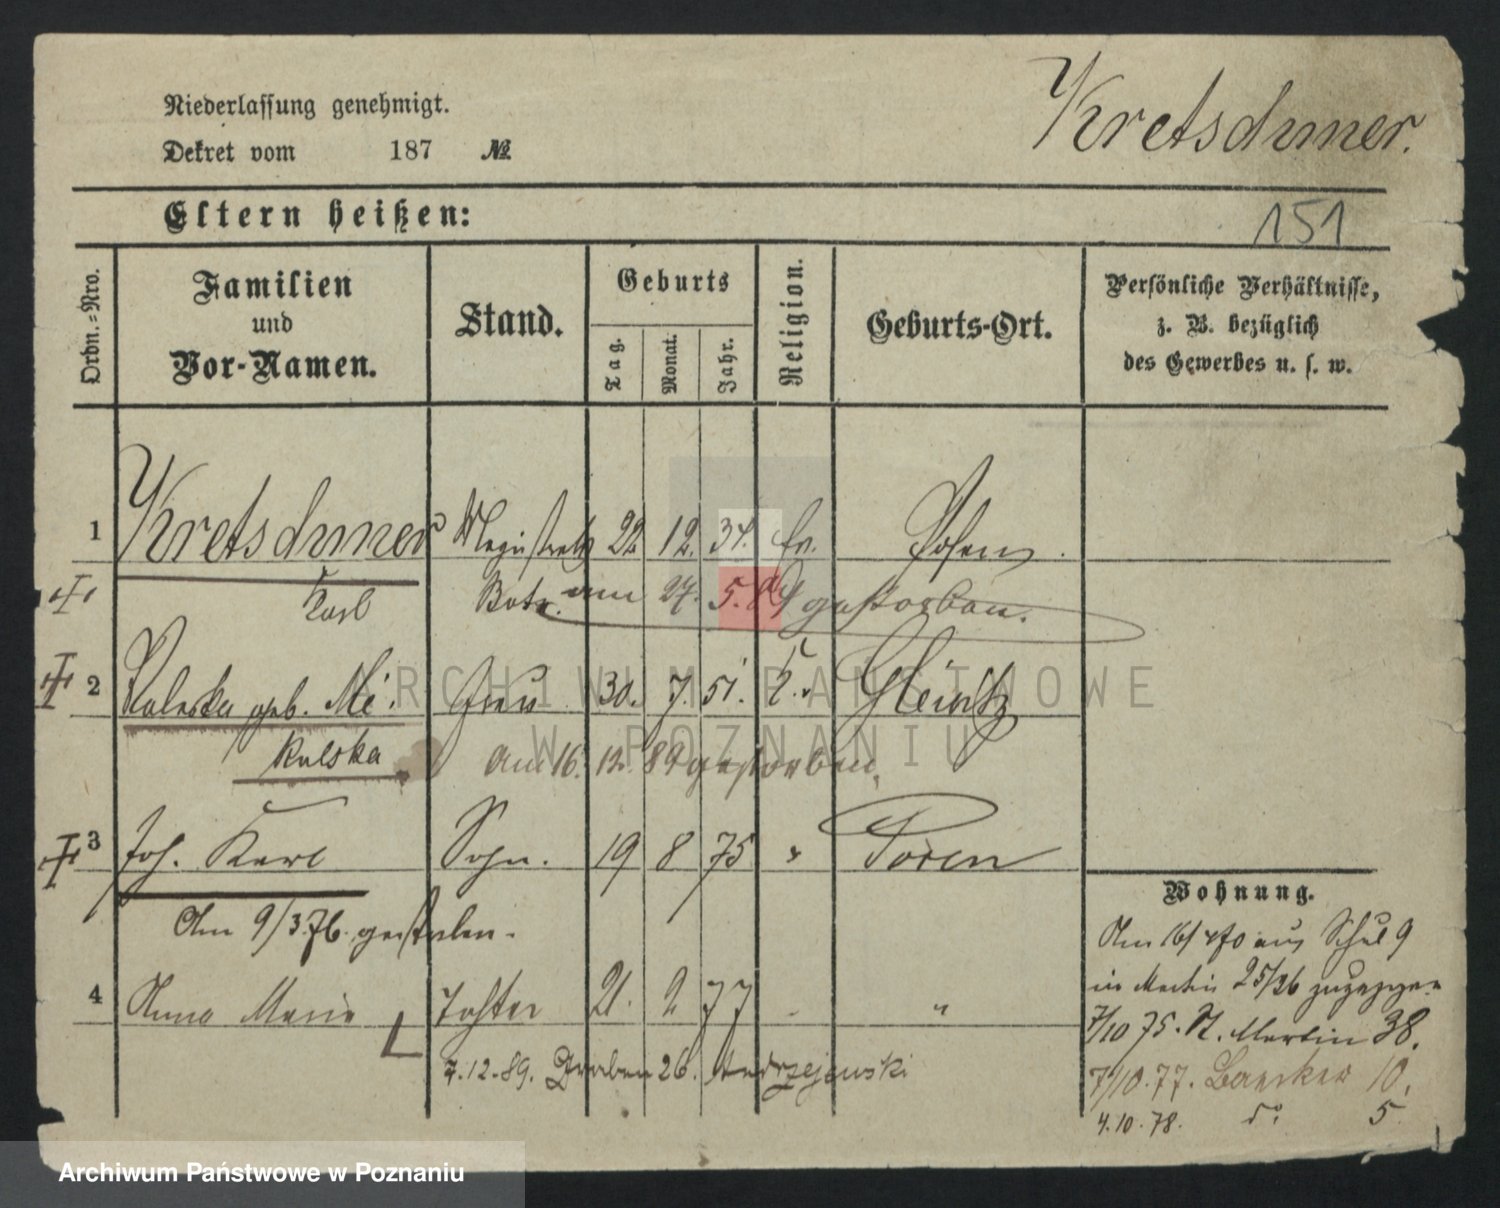 Niederlassung genehmigt.
Kretschmer.
Dekret vom 187 №
Eltern heißen:
151
Ordn.-Nro.
Familien und Vor-Namen.
Stand.
Geburts
Tag.
Monat.
Jahr.
Religion.
Geburts-Ort.
Persönliche Verhältnisse,
z. B. bezüglich
des Gewerbes u. s. w.
1 Kretschmer Magistrats 22 12. 34. Ev. Posen.
Karl Bote. am 27. 5. 84 gestorben.
2 geb. Mi- Frau 30. 7. 51. k. Gleiwitz
kulska am 16. 12. 89 gestorben.
3 Joh. Karl Sohn. 19 8 75 " Posen
Am 9/3.76. gestorben.
4 Anna Marie Tochter 21. 2 77 "
7.12.89. Draben 26. Andrzejewski
Wohnung.
Am 16/ aus Schul 9
in Martin 25/26 zugezogen
7/10 75. St. Martin 38.
7/10.77. Baecker 10.
4.10.78. do 5
ARCHIWUM PAŃSTWOWE
W POZNANIU
Archiwum Państwowe w Poznaniu